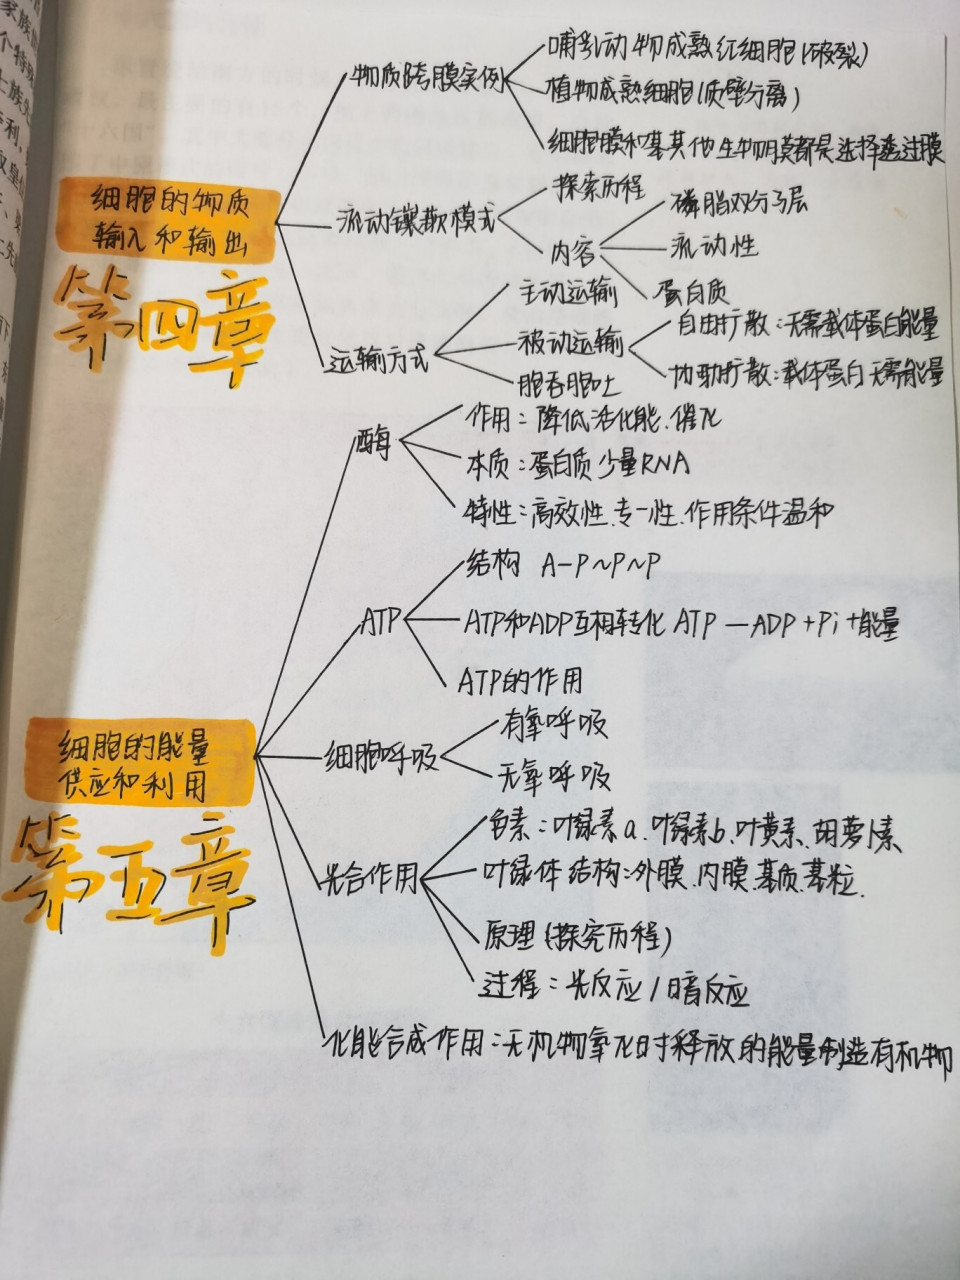 物质跨膜实例
哺乳动物成熟红细胞(破裂)
植物成熟细胞(质壁分离)
细胞膜和其他生物膜都是选择透过膜
细胞的物质
输入和输出
第四章
流动镶嵌模式
探索历程
内容
磷脂双分子层
流动性
蛋白质
运输方式
主动运输
被动运输
自由扩散:无需载体蛋白能量
协助扩散:载体蛋白无需能量
胞吞胞吐
酶
作用:降低活化能、催化
本质:蛋白质 少量RNA
特性:高效性、专一性、作用条件温和
ATP
结构 A-P~P~P
ATP和ADP互相转化 ATP—ADP+Pi+能量
ATP的作用
细胞的能量
供应和利用
第五章
细胞呼吸
有氧呼吸
无氧呼吸
光合作用
色素:叶绿素a、叶绿素b、叶黄素、胡萝卜素
叶绿体结构:外膜、内膜、基质、基粒.
原理(探究历程)
过程:光反应/暗反应
化能合成作用:无机物氧化时释放的能量制造有机物